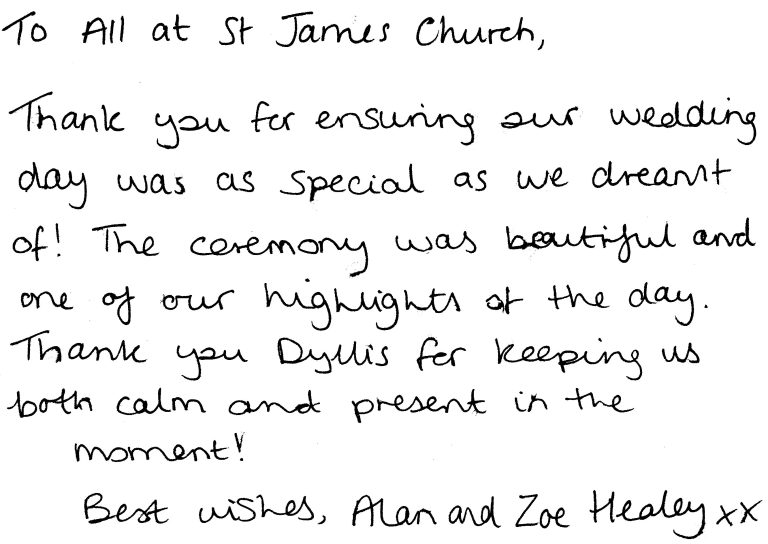 To All at St James Church,
Thank you for ensuring our wedding
day was as special as we dreamt
of! The ceremony was beautiful and
one of our highlights of the day.
Thank you Dyllis for keeping us
both calm and present in the
moment!
Best wishes, Alan and Zoe Healey xx